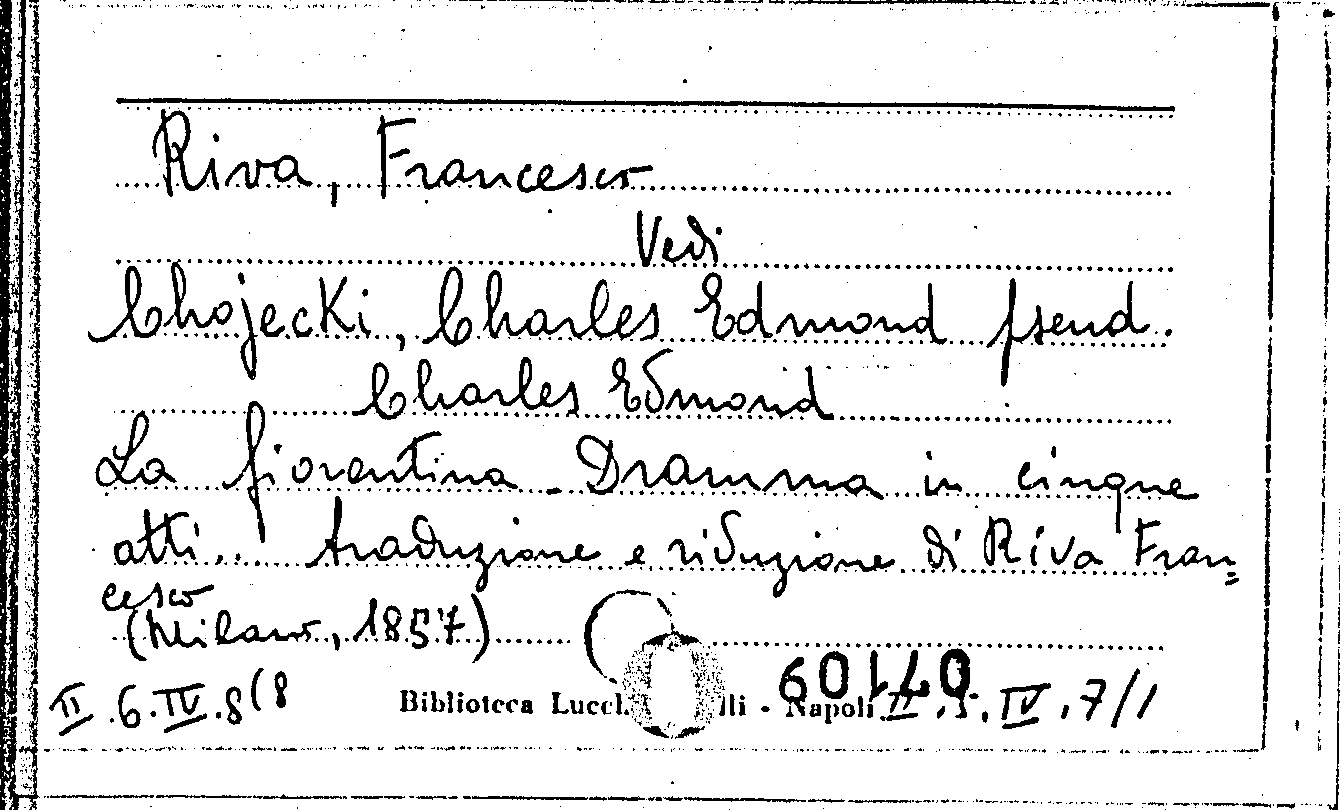 Riva, Francesco
Vedi
Chojecki, Charles Edmond pseud.
Charles Edmond
La fiorentina - Dramma in cinque
atti... traduzione e riduzione di Riva Fran=
cesco
(Milano, 1857)
II.6.IV.8(8 Biblioteca - Napoli II.5.IV.7/1